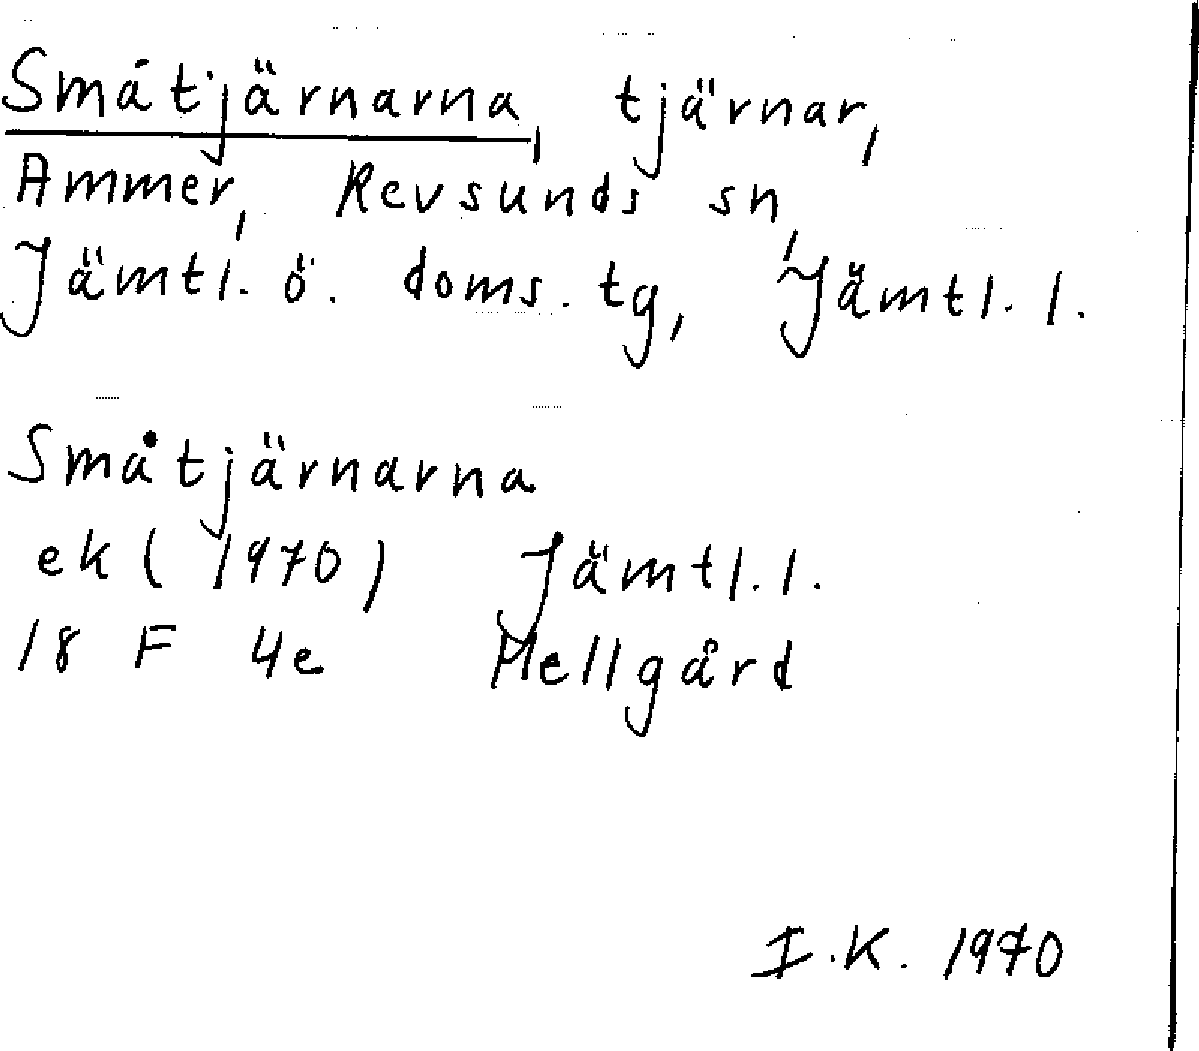 Småtjärnarna, tjärnar,
Ammer, Revsunds sn,
Jämtl. ö. doms. tg, Jämtl. l.
Småtjärnarna
ek (1970) Jämtl. l.
18 F 4e Hellgård
I.K. 1970